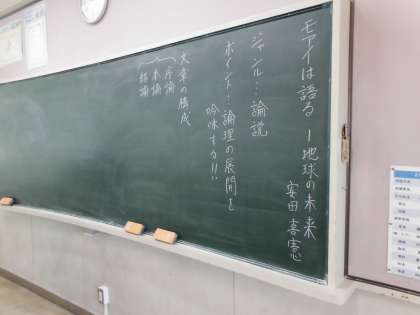 モアイは語る ー地球の未来
安田喜憲
ジャンル…論説
ポイント…論理の展開を
吟味する!!
文章の構成
序論
本論
結論